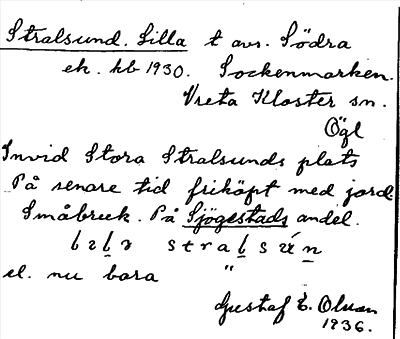 Stralsund. Lilla t avs. Södra
ek. kb 1930. Sockenmarken.
Vreta Kloster sn.
Ögl
Invid Stora Stralsunds plats
På senare tid friköpt med jord.
Småbruk. På Sjögestads andel.
stralsún
el. nu bara "
Gustaf E. Olsson
1936.